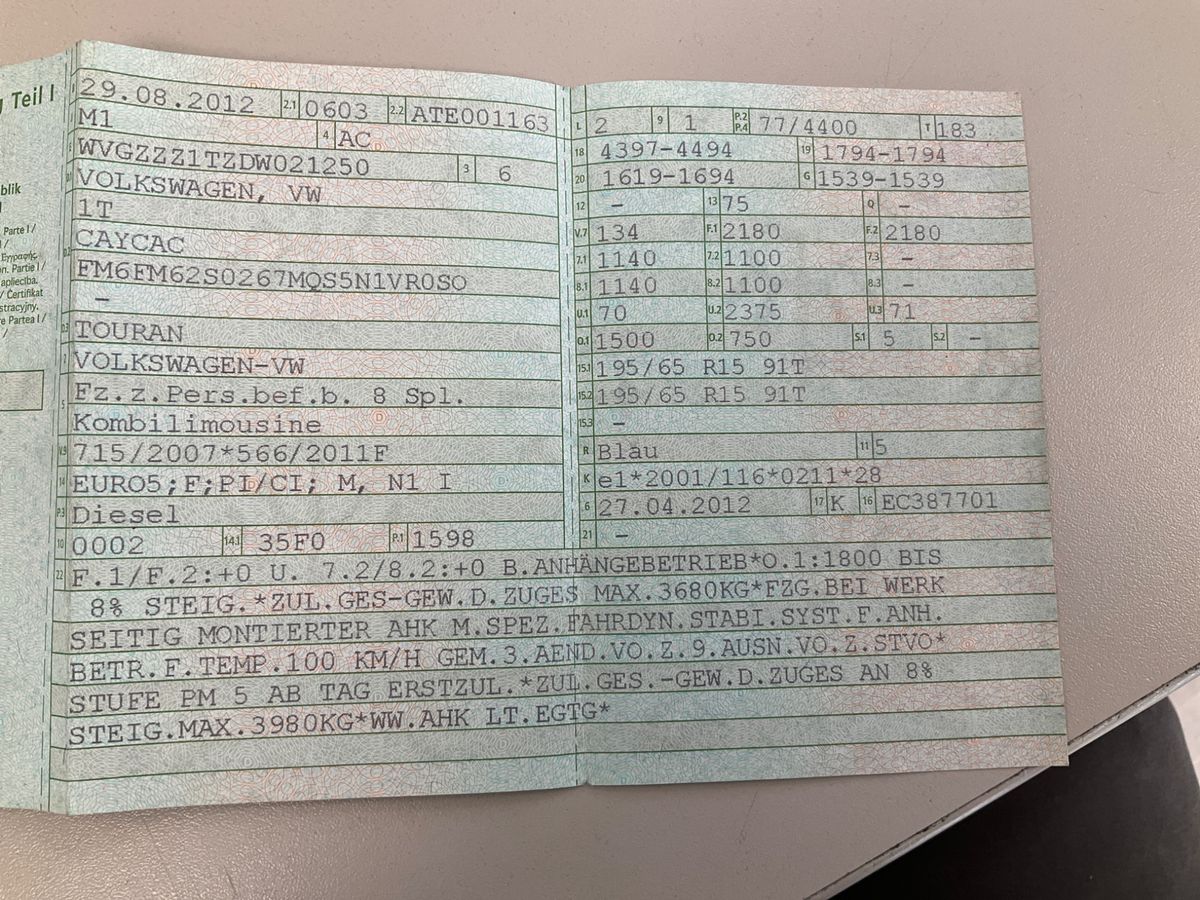 g Teil I
29.08.2012 2.1 0603 2.2 ATE001163
M1 4 AC
WVGZZZ1TZDW021250 3 6
VOLKSWAGEN, VW
1T
CAYCAC
FM6FM62S0267MQS5N1VR0SO
–
TOURAN
VOLKSWAGEN-VW
Fz.z.Pers.bef.b. 8 Spl.
5 Kombilimousine
V.9 715/2007*566/2011F
14 EURO5;F;PI/CI; M, N1 I
P.3 Diesel
10 0002 14.1 35F0 P.1 1598
L 2 9 1 P.2 P.4 77/4400 T 183
18 4397-4494 19 1794-1794
20 1619-1694 G 1539-1539
12 – 13 75 Q –
V.7 134 F.1 2180 F.2 2180
7.1 1140 7.2 1100 7.3 –
8.1 1140 8.2 1100 8.3 –
U.1 70 U.2 2375 U.3 71
O.1 1500 O.2 750 S.1 5 S.2 –
15.1 195/65 R15 91T
15.2 195/65 R15 91T
15.3 –
R Blau 11 5
K e1*2001/116*0211*28
6 27.04.2012 17 K 16 EC387701
21 –
22 F.1/F.2:+0 U. 7.2/8.2:+0 B.ANHÄNGEBETRIEB*O.1:1800 BIS
8% STEIG.*ZUL.GES-GEW.D.ZUGES MAX.3680KG*FZG.BEI WERK
SEITIG MONTIERTER AHK M.SPEZ.FAHRDYN.STABI.SYST.F.ANH.
BETR.F.TEMP.100 KM/H GEM.3.AEND.VO.Z.9.AUSN.VO.Z.STVO*
STUFE PM 5 AB TAG ERSTZUL.*ZUL.GES.-GEW.D.ZUGES AN 8%
STEIG.MAX.3980KG*WW.AHK LT.EGTG*
blik
Parte I /
Εγγραφής.
n. Partie I /
apliecība.
/ Certifikat
stracyjny.
e Partea I /